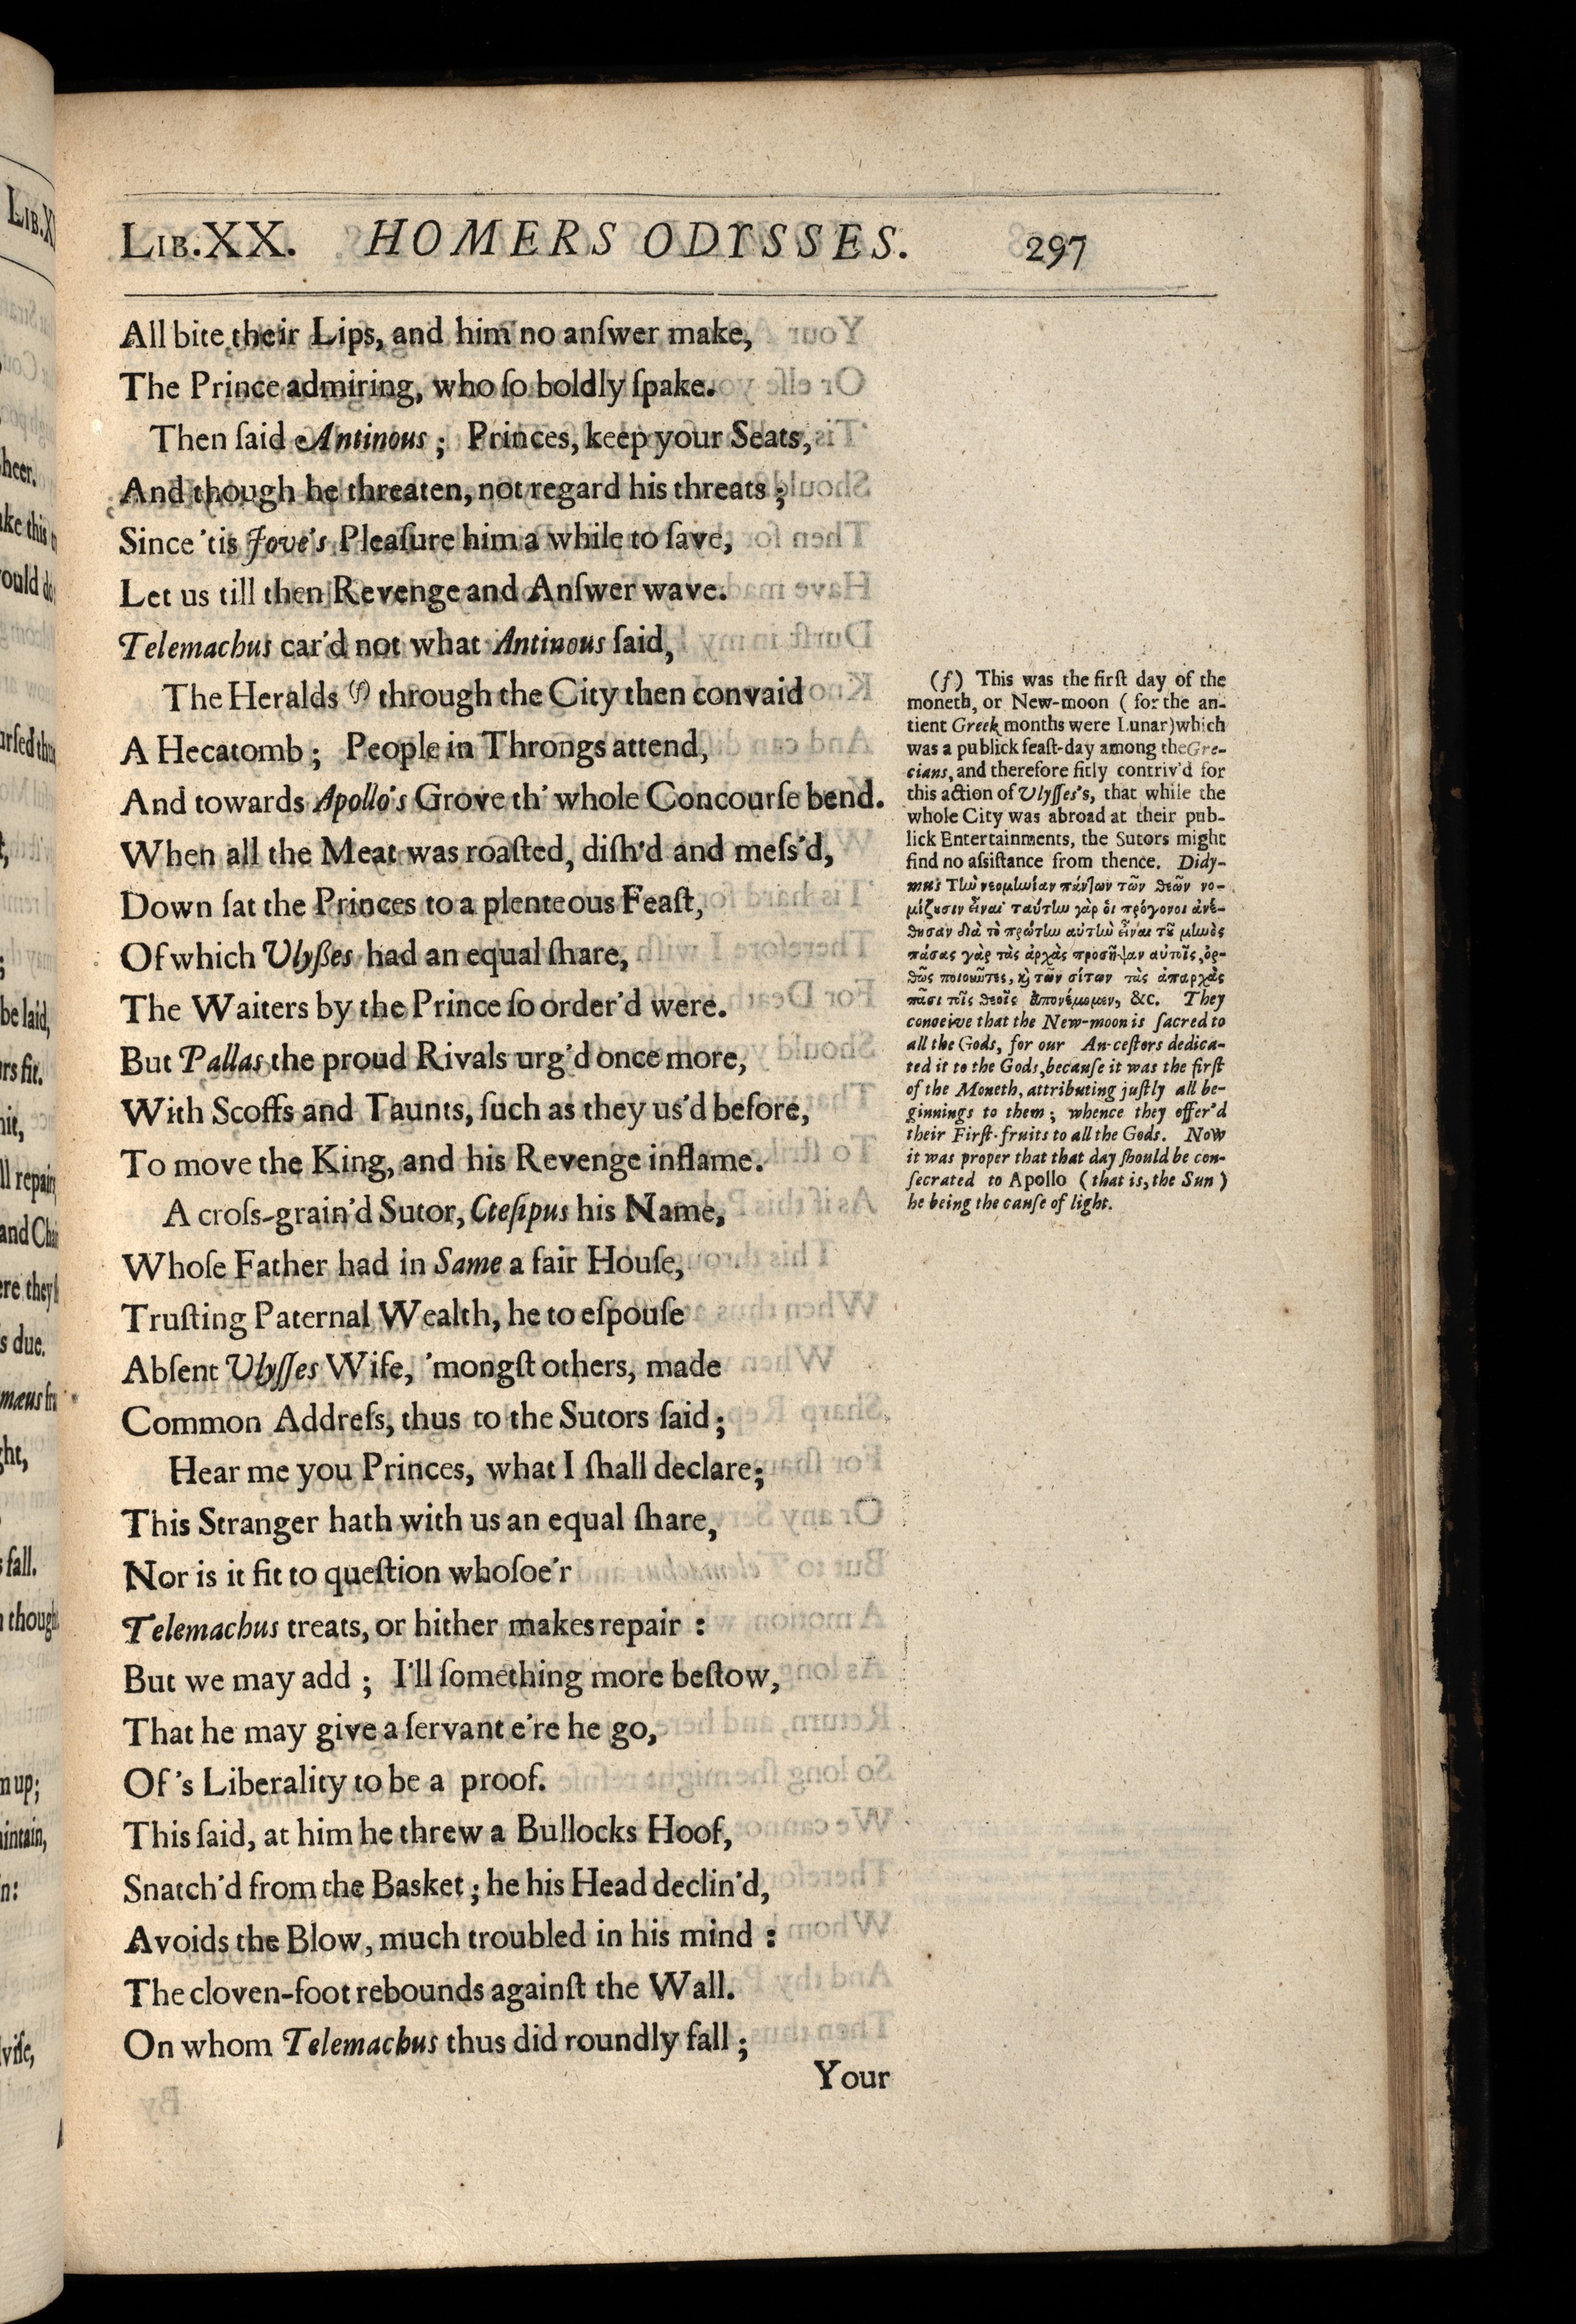 LIB.XX. HOMERS ODYSSES. 297
All bite their Lips, and him no anſwer make,
The Prince admiring, who ſo boldly ſpake.
Then ſaid Antinous ; Princes, keep your Seats,
And though he threaten, not regard his threats ;
Since 'tis Jove's Pleaſure him a while to ſave,
Let us till then Revenge and Anſwer wave.
Telemachus car'd not what Antinous ſaid,
The Heralds (f) through the City then convaid
A Hecatomb ; People in Throngs attend,
And towards Apollo's Grove th' whole Concourſe bend.
When all the Meat was roaſted, diſh'd and meſs'd,
Down ſat the Princes to a plenteous Feaſt,
Of which Ulyßes had an equal ſhare,
The Waiters by the Prince ſo order'd were.
But Pallas the proud Rivals urg'd once more,
With Scoffs and Taunts, ſuch as they us'd before,
To move the King, and his Revenge inflame.
A croſs-grain'd Sutor, Cteſipus his Name,
Whoſe Father had in Same a fair Houſe,
Truſting Paternal Wealth, he to eſpouſe
Abſent Ulyſſes Wife, 'mongſt others, made
Common Addreſs, thus to the Sutors ſaid ;
Hear me you Princes, what I ſhall declare;
This Stranger hath with us an equal ſhare,
Nor is it fit to queſtion whoſoe'r
Telemachus treats, or hither makes repair :
But we may add ; I'll ſomething more beſtow,
That he may give a ſervant e're he go,
Of 's Liberality to be a proof.
This ſaid, at him he threw a Bullocks Hoof,
Snatch'd from the Basket ; he his Head declin'd,
Avoids the Blow, much troubled in his mind :
The cloven-foot rebounds againſt the Wall.
On whom Telemachus thus did roundly fall ;
Your
(f) This was the firſt day of the
moneth, or New-moon ( for the an-
tient Greek months were Lunar)which
was a publick feaſt-day among the Gre-
cians, and therefore fitly contriv'd for
this action of Ulyſſes's, that while the
whole City was abroad at their pub-
lick Entertainments, the Sutors might
find no aſsiſtance from thence. Didy-
mus Τὼ νεομωίαν πάντων τῶν θεῶν νο-
μίζουσιν εἶναι ταύτω γὰρ ὁι πρόγονοι ἀνέ-
θησαν διὰ τὸ πρώτω αὐτὼ εἶναι τῦ μωὸς
πάσας γὰρ τὰς ἀρχὰς προσῆψαν αὐτοῖς, ὀρ-
θῶς ποιοιῶτες, ϗ τῶν σίτων τὰς ἀπαρχὰς
πᾶσι τοῖς θεοῖς ἀπονέμομεν, &c. They
conceive that the New-moon is ſacred to
all the Gods, for our An-ceſtors dedica-
ted it to the Gods, becauſe it was the firſt
of the Moneth, attributing juſtly all be-
ginnings to them ; whence they offer'd
their Firſt-fruits to all the Gods. Now
it was proper that that day ſhould be con-
ſecrated to Apollo ( that is, the Sun )
he being the cauſe of light.